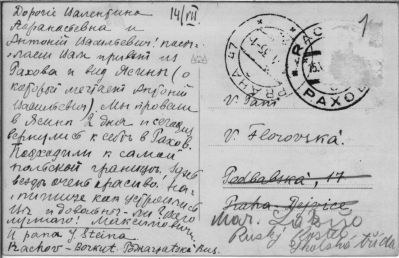 Дорогие Валентина
Афанасьевна и
Антоний Васильевич! Посы-
лаем Вам привет из
Рахова и вид Ясины (о
которой мечтает Антоний
Васильевич). Мы провели
в Ясина 2 дня и сегодня
вернулись к себе в Рахов.
Подходили к самой
польской границы. Здесь
везде очень красиво. На-
пишите как устроились
Вы и довольны-ли? Всего
лучшего! Максимович
и pana Steina
Rachov - Borkut. Podkarpatská Rus.
14/VII
1
PRAHA 47
RACHOV
РАХОВ
V. Paní
V. Florovská.
Podbabská, 17
Praha - Dejvice
Mar. Lázně
Ruský